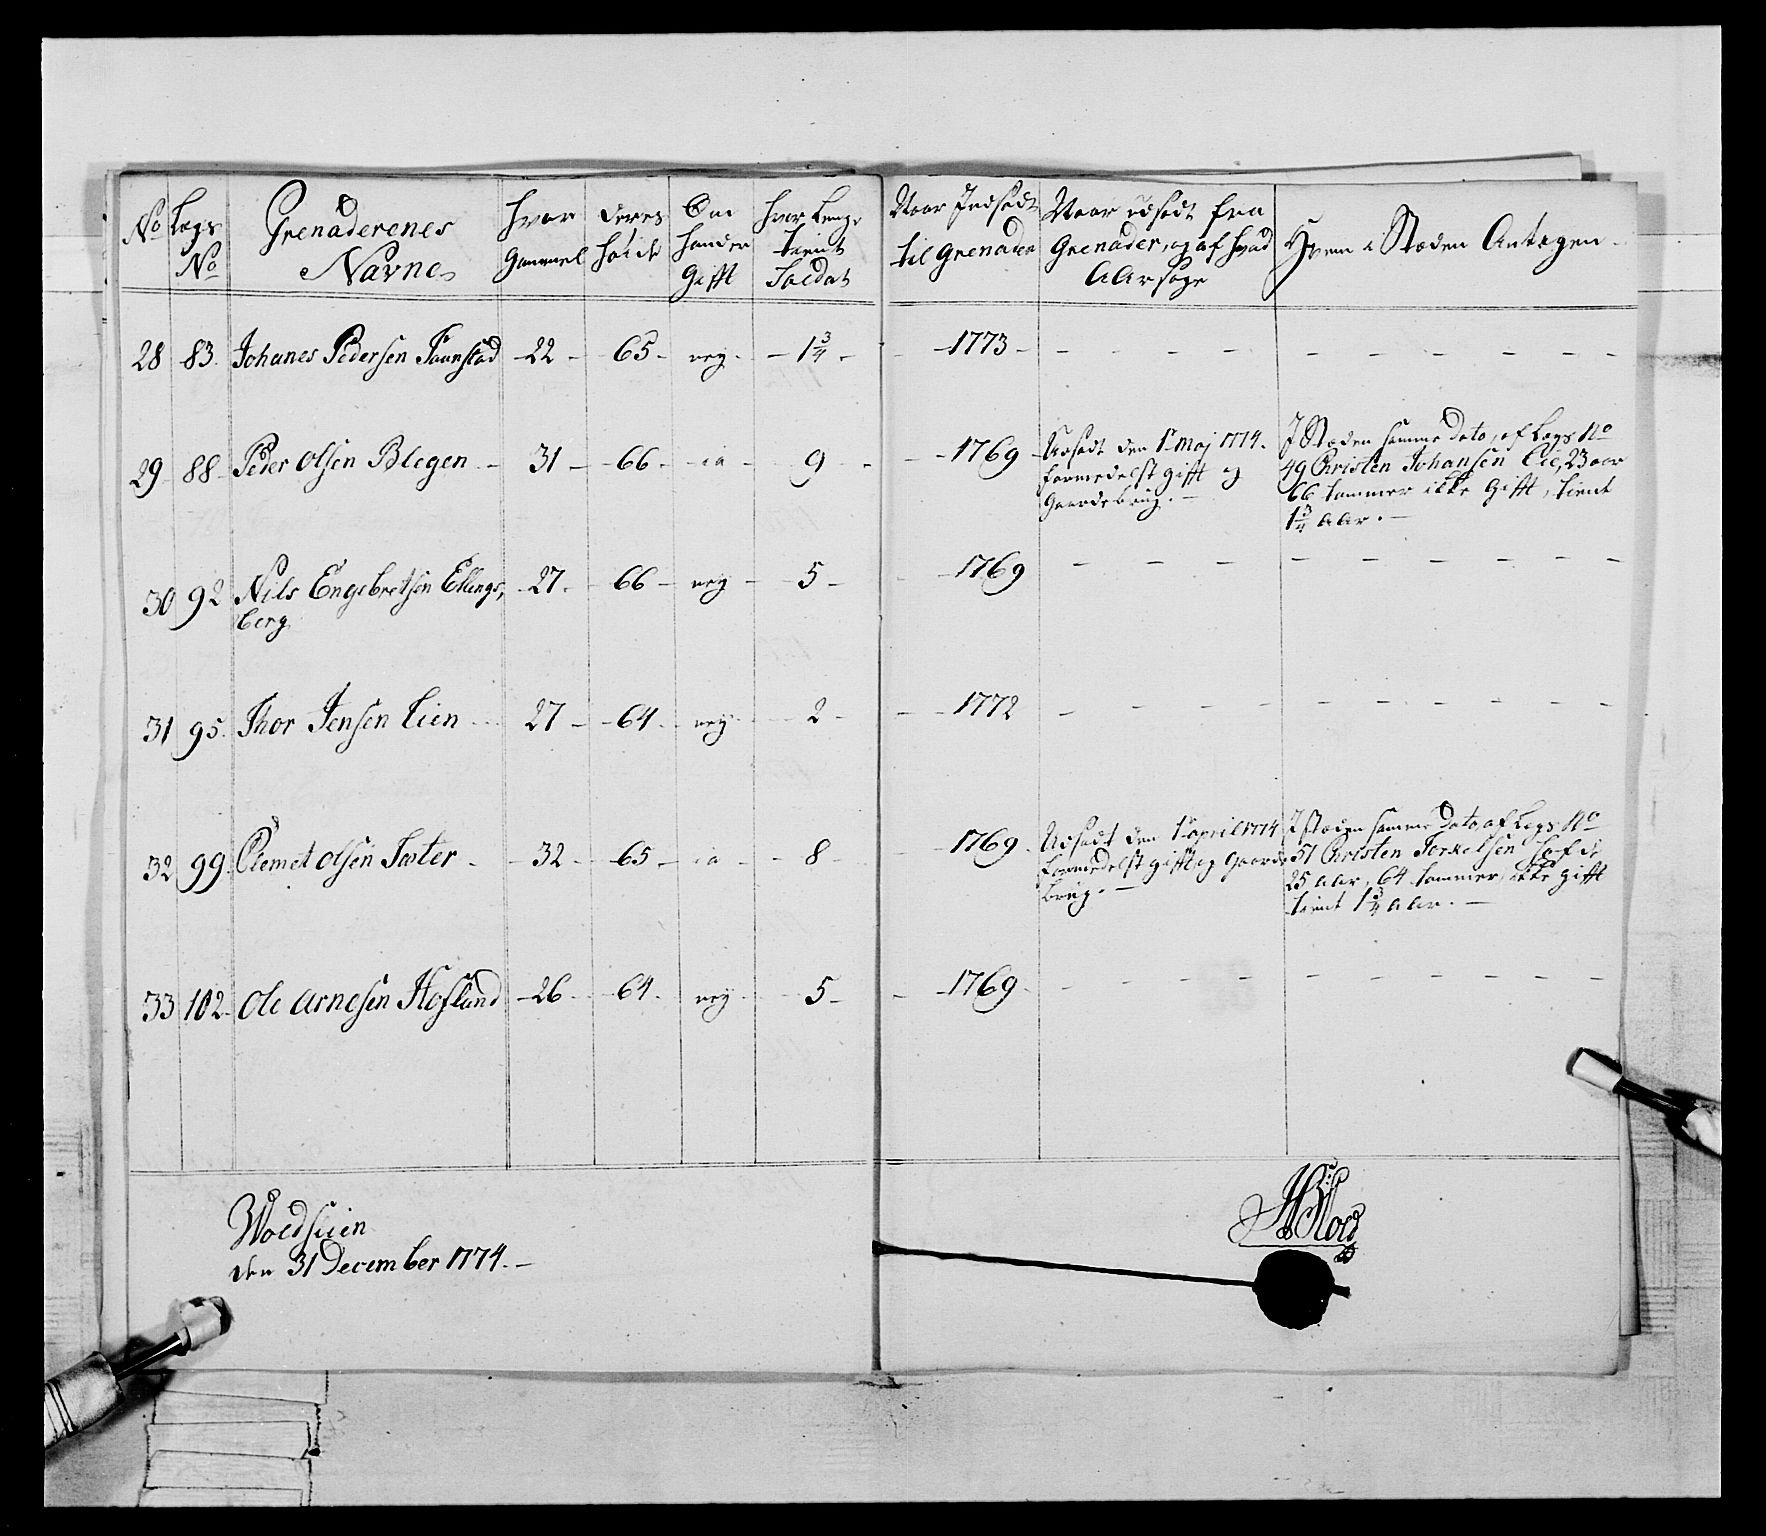 No Lægs No Grenaderenes Navne hvor Gammel deres Høide Om hander Gifft hvor Lenge tient Soldat Naar Indsadt til Grenader Naar udsadt fra Grenader, og af hvad AArsage Hvem i Stæden Antagen
28 83 Johanes Pedersen - 22 - - 65 - ney - - 1 3/4 - - 1773 - - - - - - - - - - -
29 88 Peder Olsen Blegen - - 31 - - 66 - - ia - - 9 - - 1769 -
Udsadt den 1te Maj 1774.
formedelst Gifft og
Gaardebrug. -
I Stæden samme Dato, af Lægs No
49 Christen Johansen Lie, 23 aar
66 tommer ikke Gifft, tient
1 3/4 AAr. -
30 92 Nils Engebretsen Ellings, - 27 - - 66 - ney - - 5 - - 1769 - - - - - - - - - -
berg
31 95 Thor Jensen Lien - - 27 - - 64 - ney - - 2 - - 1772 - - - - - - - - - -
32 99 Clemet Olsen Sæter - - 32 - - 65 - ia - - 8 - - 1769 -
Udsadt den 1te april 1774
formedelst Gifft og Gaarde
brug. -
I stæden samme Dato, af Legs No
51 Christen Torkelsen
25 AAr, 64 tommer, ikke Gifft
tient 1 3/4 AAr. -
33 102 Ole Arnesen Hofland - 26 - - 64 - ney - - 5 - - 1769 - - - - - - - - - -
Woldsuien
den 31 December 1774. -